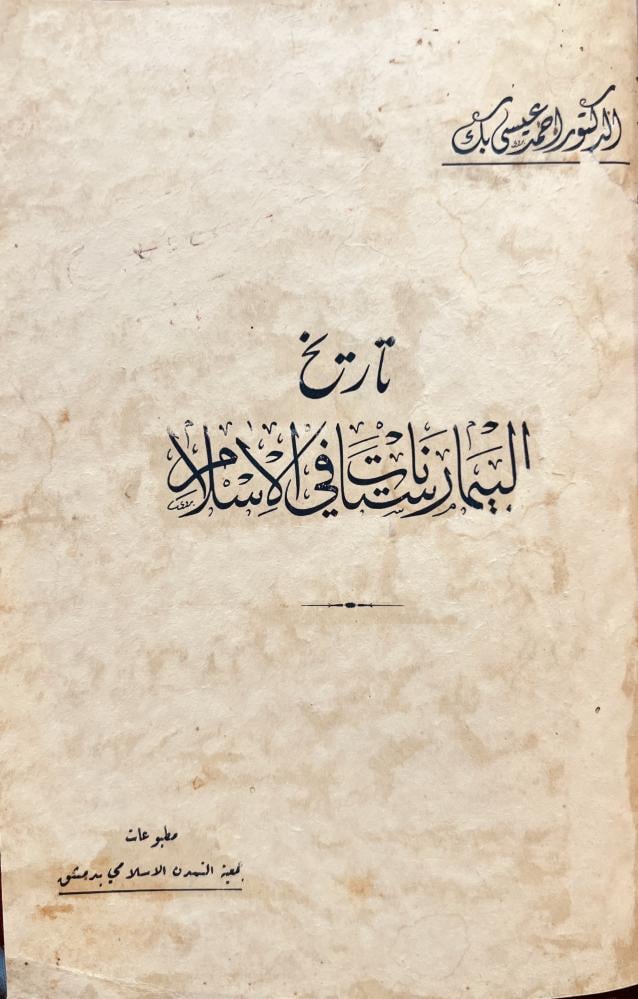 الدكتور احمد عيسى بك
تاريخ
البيمارستانات في الإسلام
مطبوعات
جمعية التمدن الاسلامي بدمشق